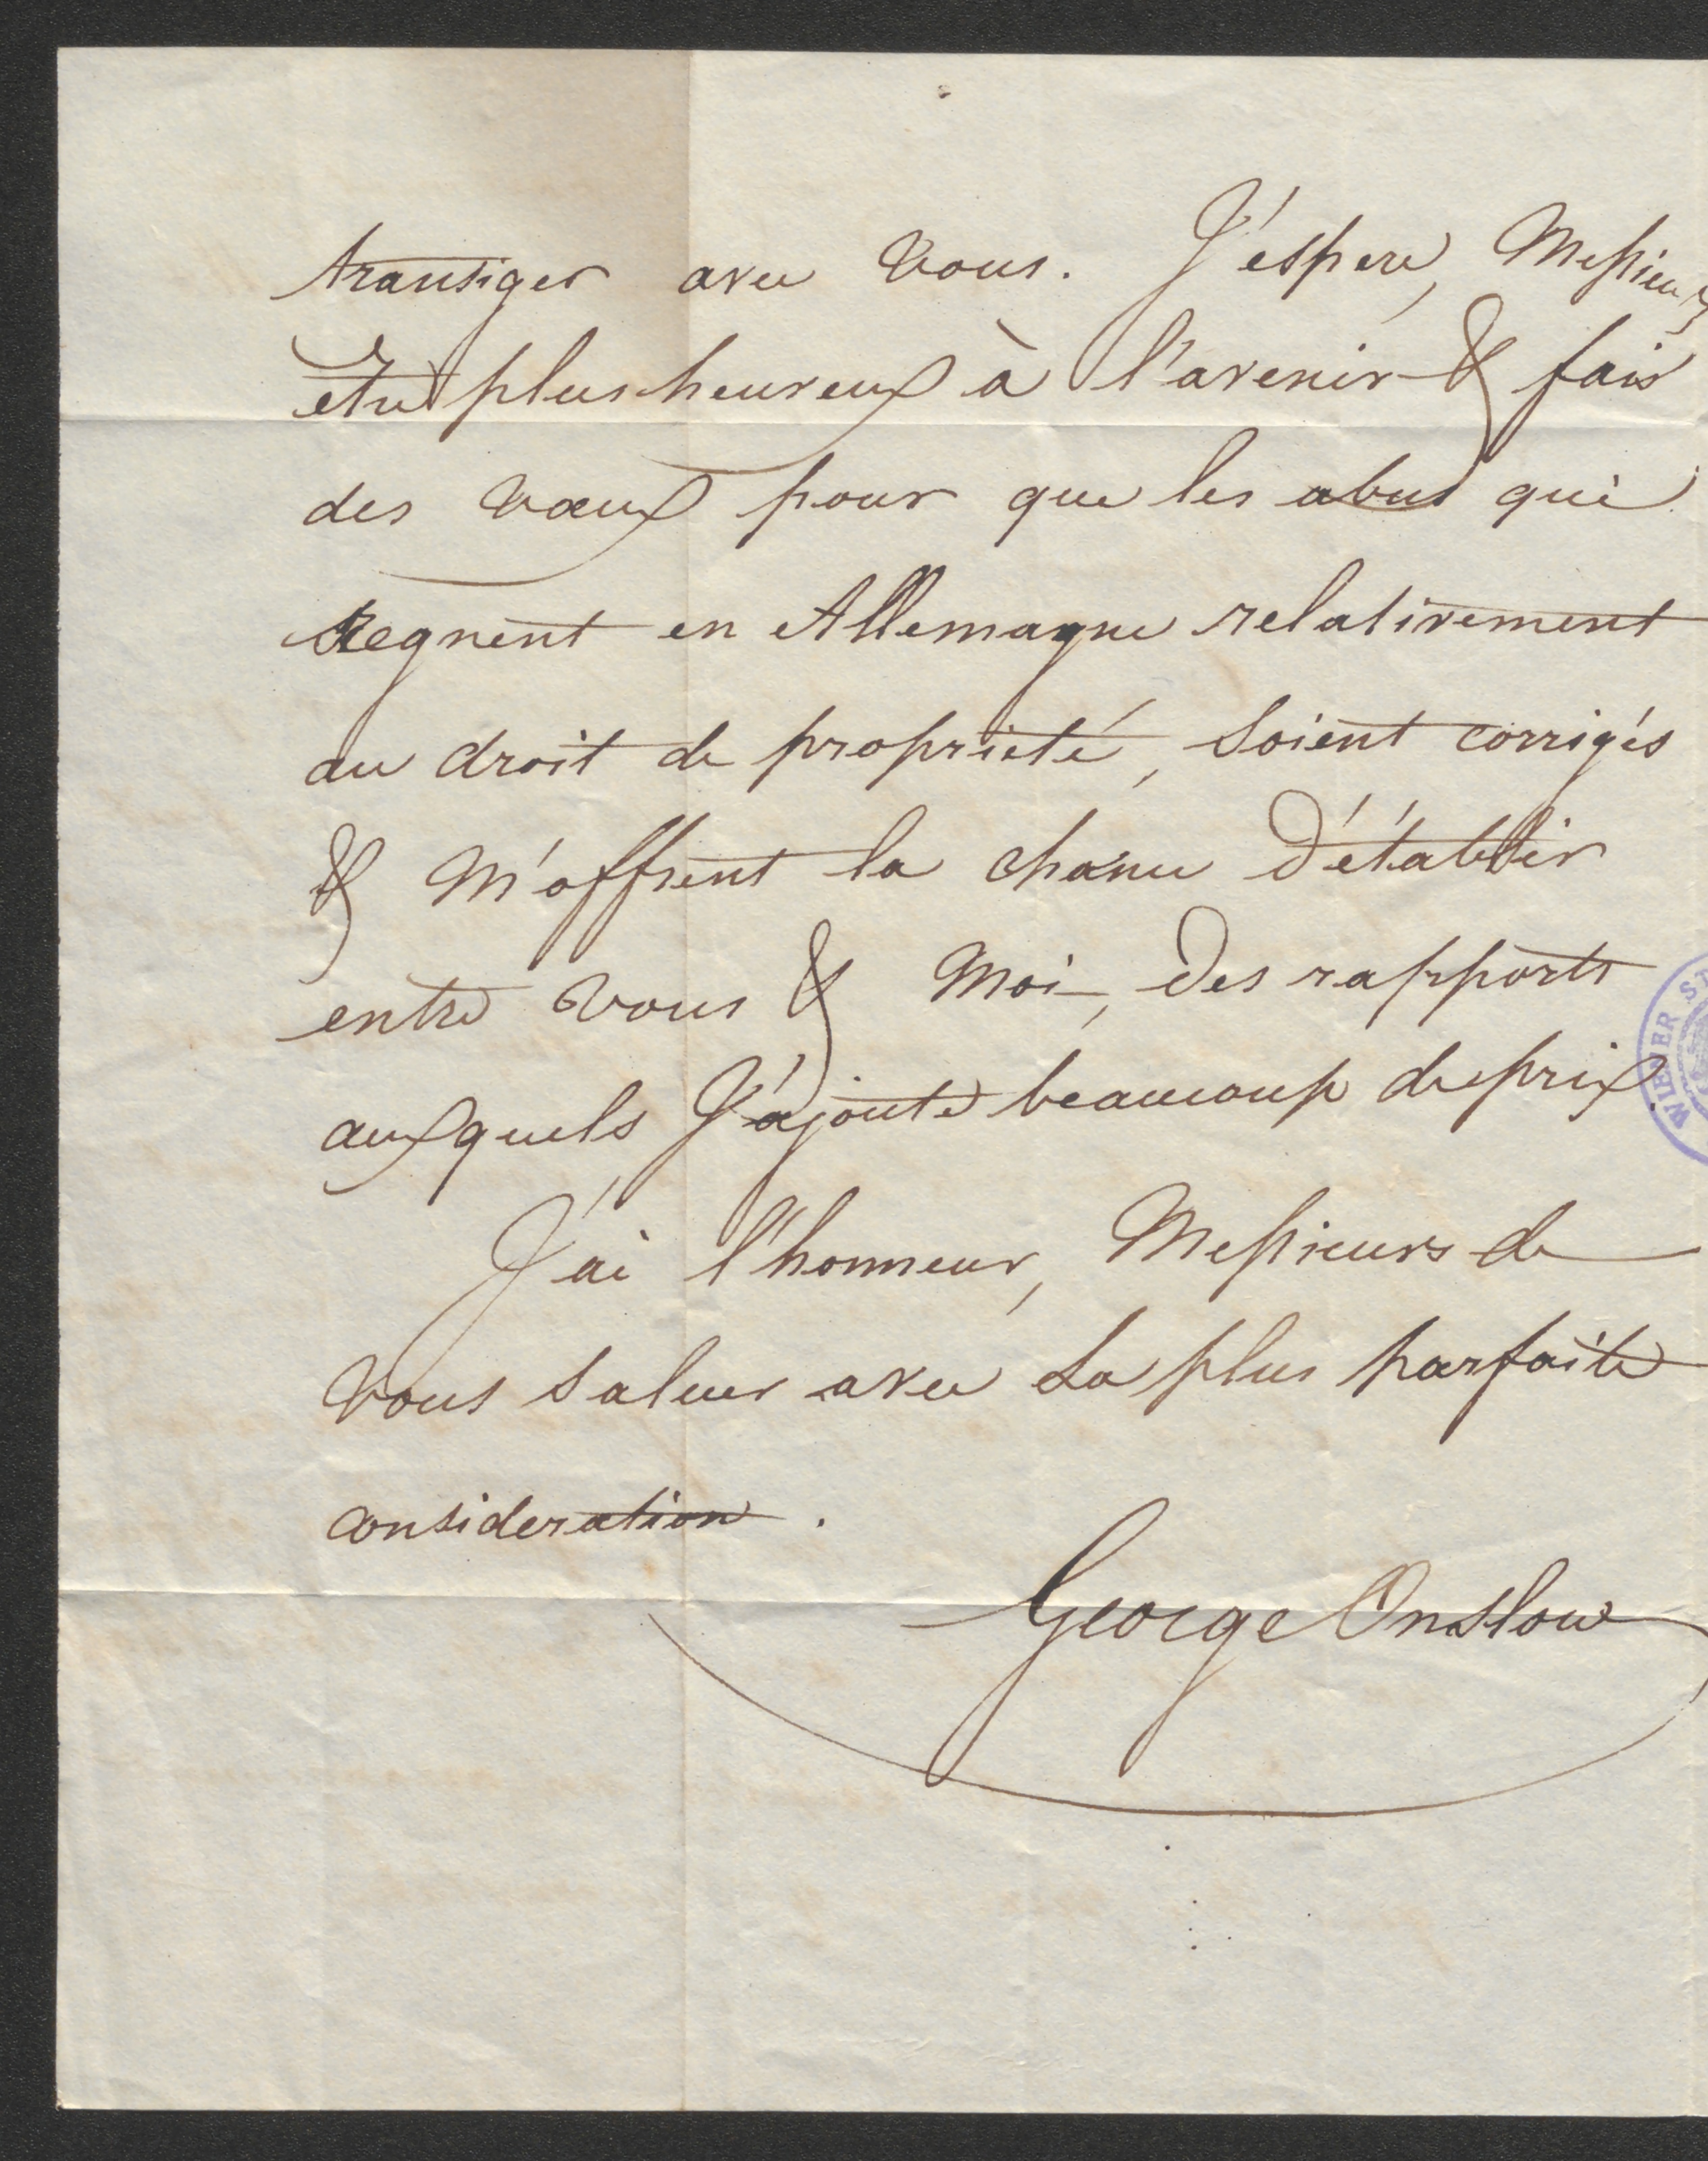 transiger avec vous. J'espere, Messieurs
etre plus heureux à l'avenir & fais
des vœux pour que les abus qui
regnent en Allemagne relativement
au droit de proprieté, soient corrigés
& m'offrent la chance d'établir
entre vous & moi, des rapports
auxquels J'ajoute beaucoup de prix.
J'ai l'honneur, Messieurs de
vous saluer avec la plus parfaite
consideration.
George Onslow
WIENER